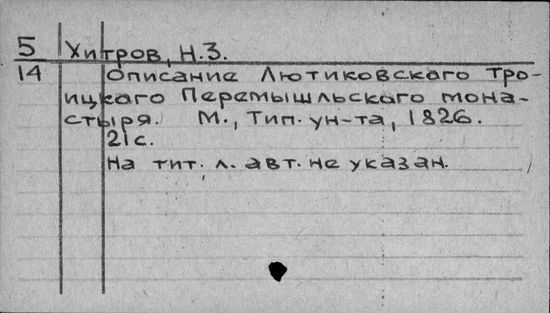 5 Хитров, Н.З.
14 Описание Лютиковского Тро-
ицкого Перемышльского мона-
стыря. М., Тип. ун-та, 1826.
21с.
На тит. л. авт. не указан.